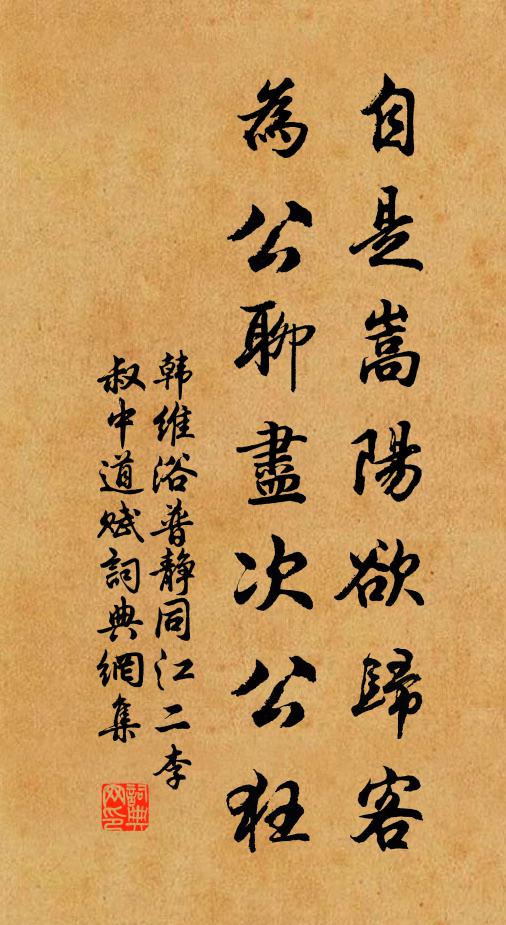 自是嵩陽欲歸客
為公聊盡次公狂
韩維浴普静同江二李
叔中道赋詞典網集
詞典网印